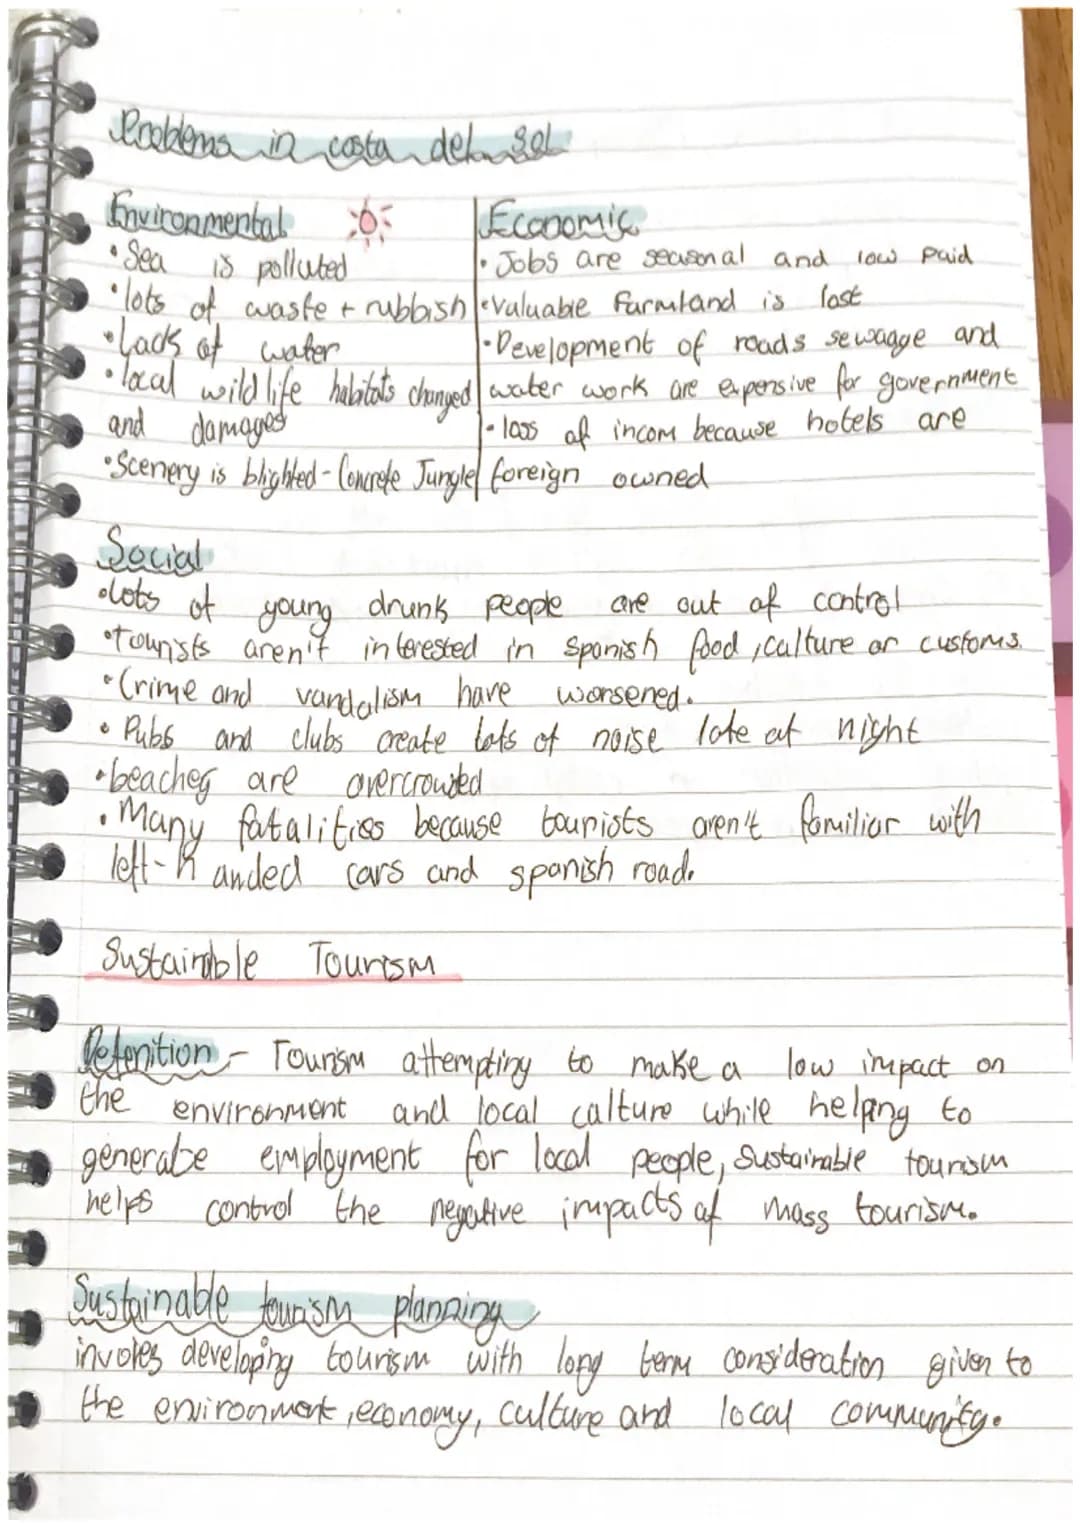 Problems in costa del sol
Environmental
• Sea is polluted
• lots of waste + rubbish
• Lack of water
• local wildlife habitats changed
and damages
• Scenery is blighted - Concrete Jungle
Economic
• Jobs are seasonal and low paid
• valuable farmland is lost
• Development of roads sewagge and
water work are expensive for government
• loss of incom because hotels are
foreign owned
Social
• Lots of young drunk people are out of control
• Tourists aren't interested in Spanish food, culture or customs.
• Crime and vandalism have worsened.
• Pubs and clubs create lots of noise late at night
• beaches are overcrowded
• Many fatalities because tourists aren't familiar with
left-handed cars and spanish road.
Sustainable Tourism
Defenition - Tourism attempting to make a low impact on
the environment and local culture while helping to
generate employment for local people, Sustainable tourism
helps control the negative impacts of mass tourism.
Sustainable tourism planning
involes developing tourism with long term consideration given to
the environment, economy, culture and local community.